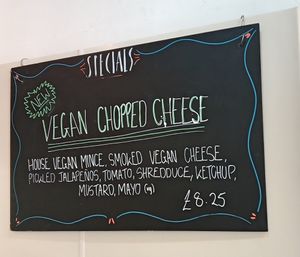 SPECIALS
NEW
VEGAN CHOPPED CHEESE
HOUSE VEGAN MINCE, SMOKED VEGAN CHEESE,
PICKLED JALAPEÑOS, TOMATO, SHREDDUCE, KETCHUP,
MUSTARD, MAYO (vg)
£8.25